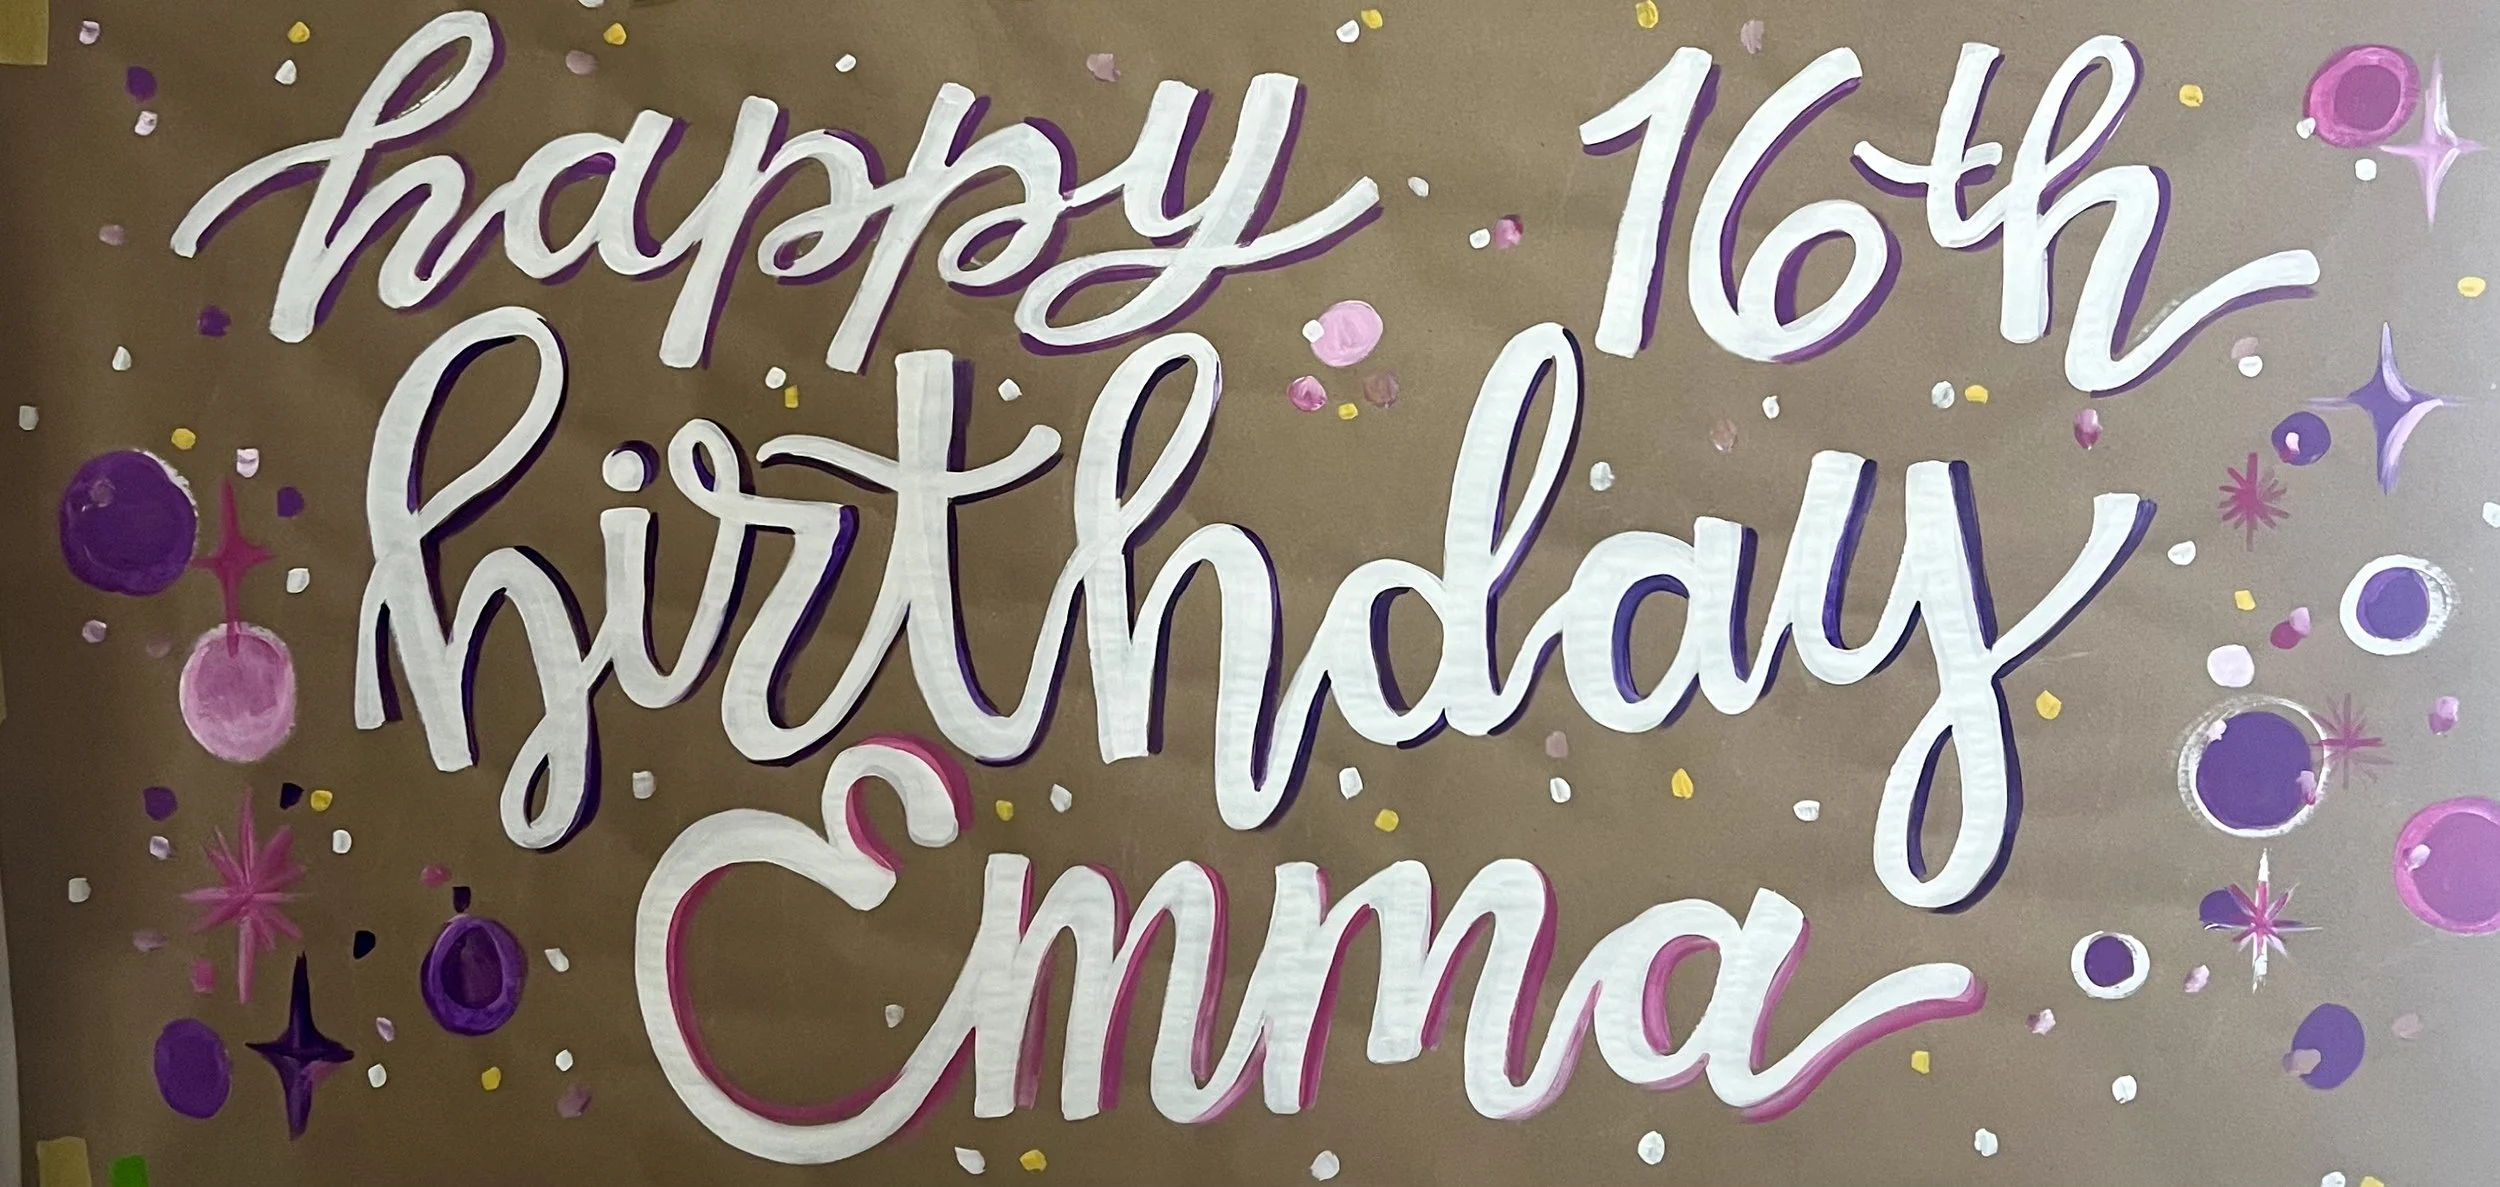 happy 16th
birthday
Emma